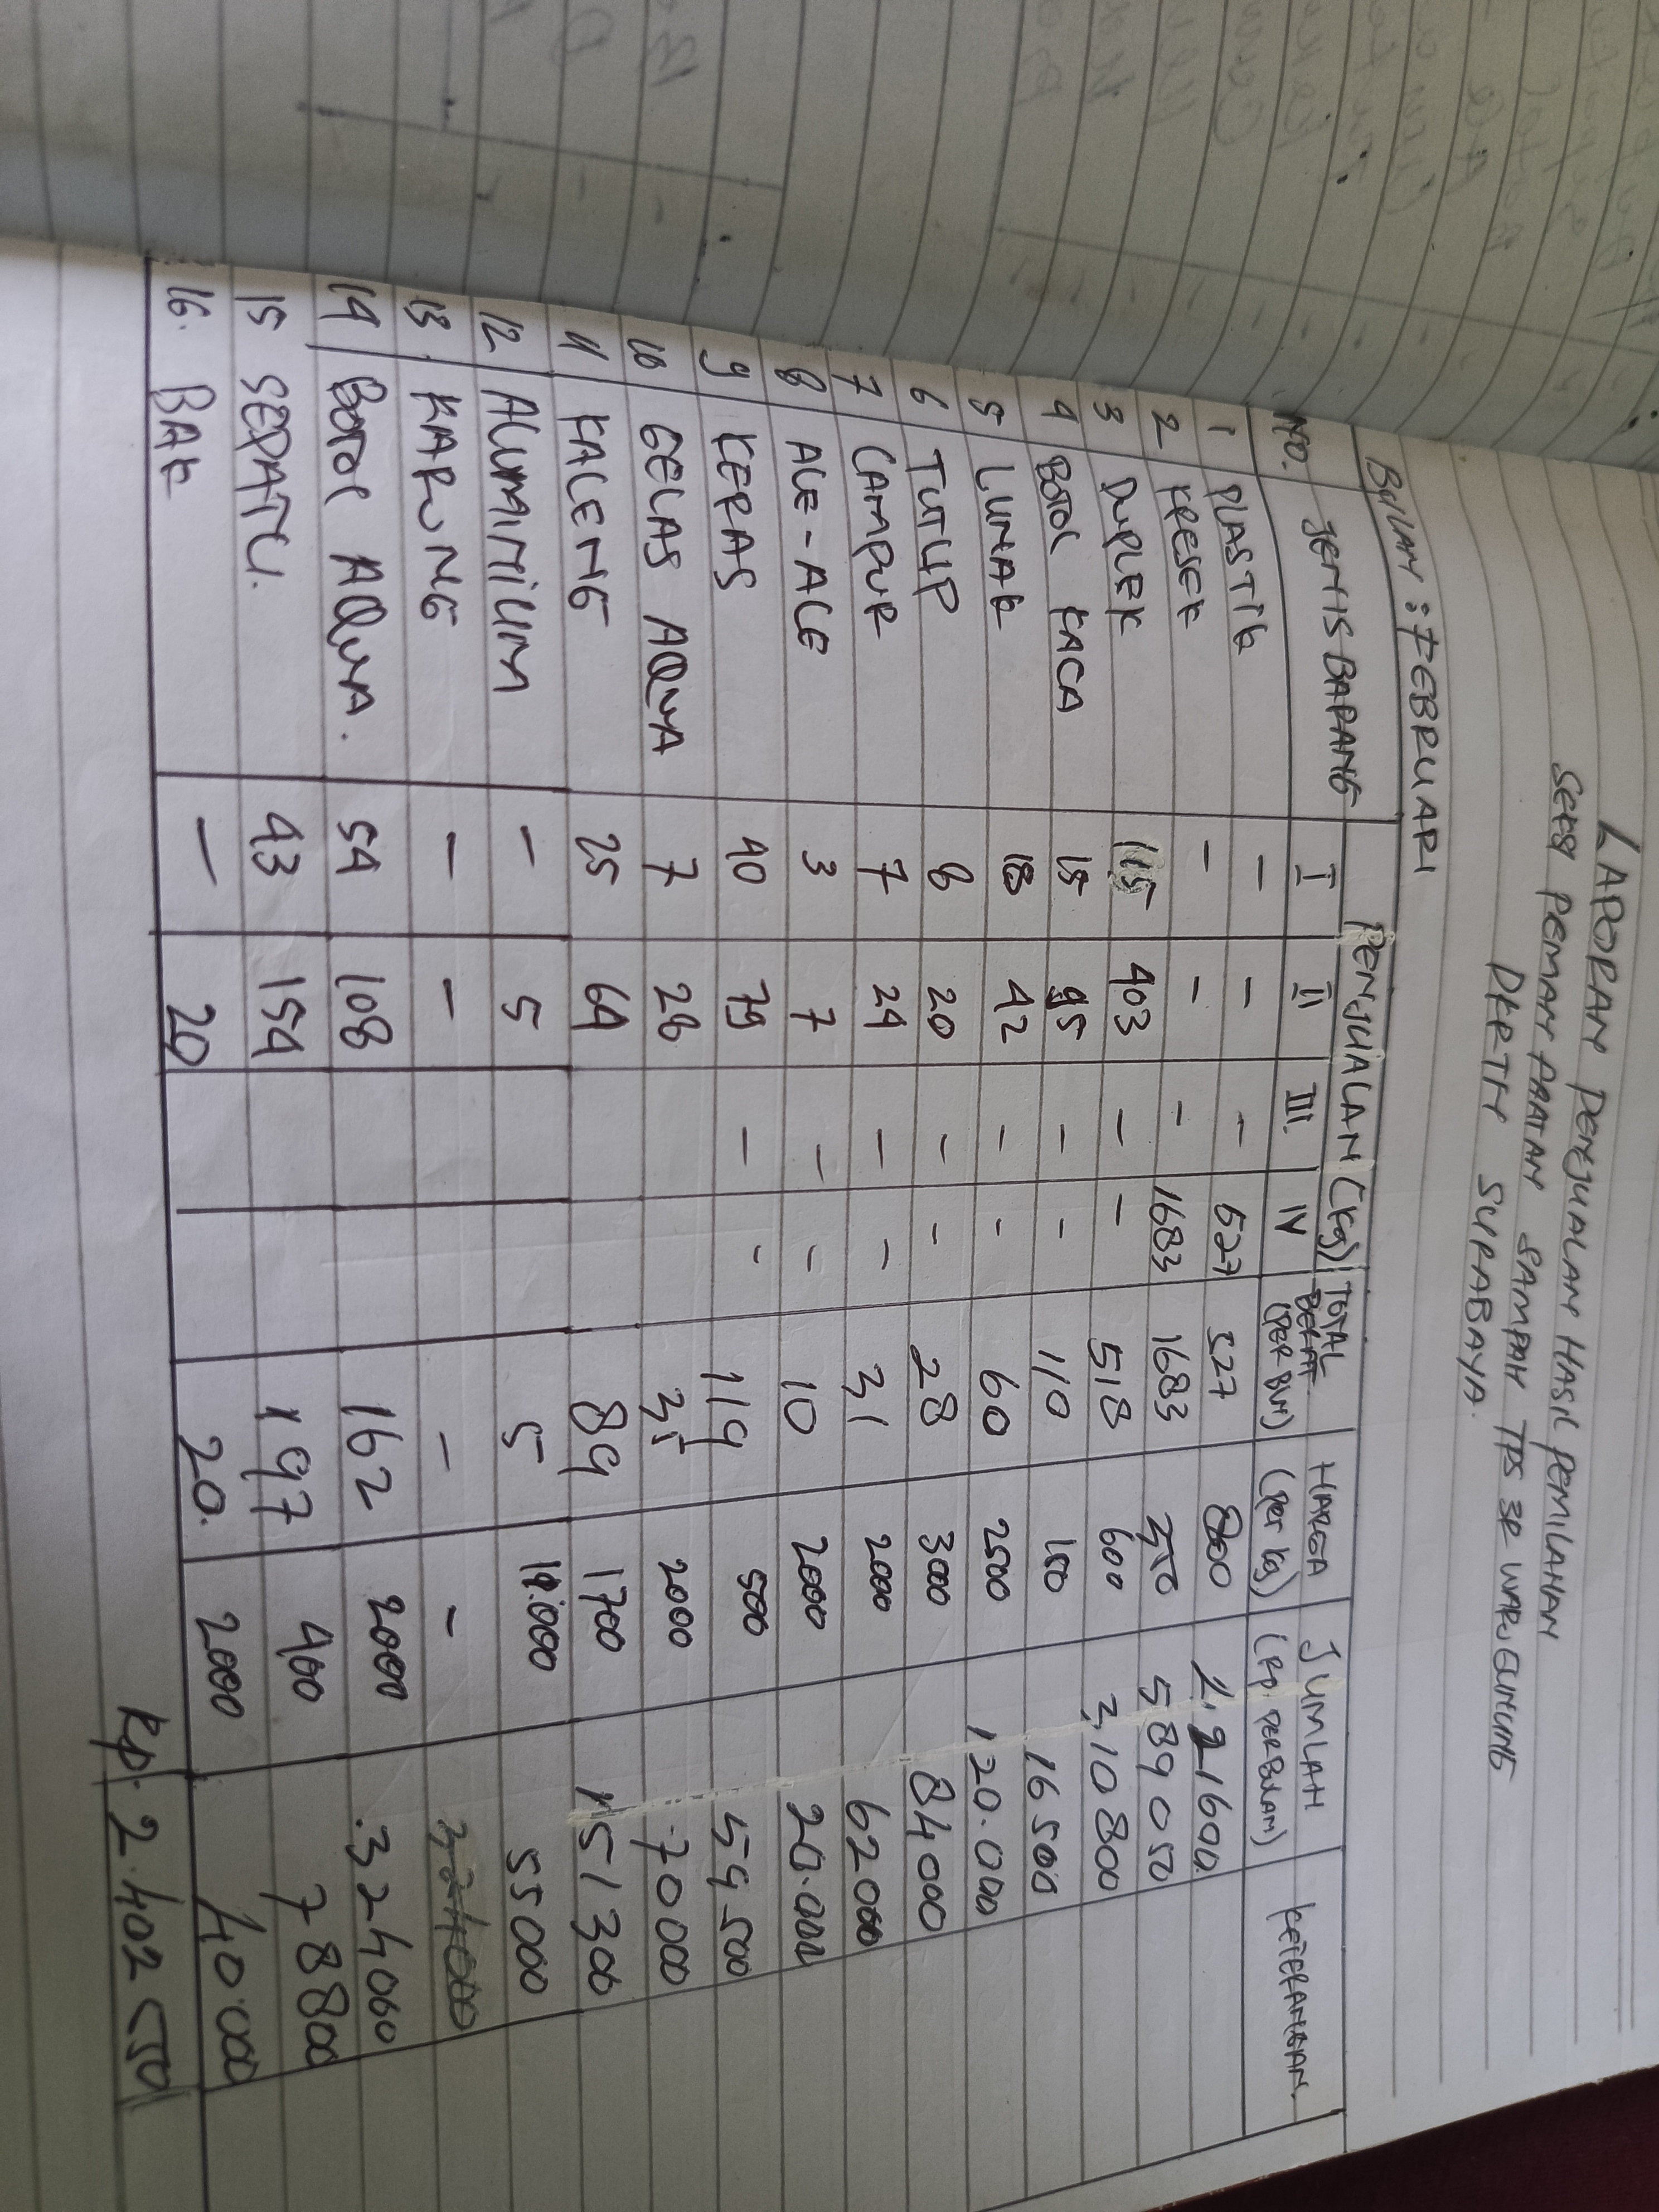 LAPORAN PENJUALAN HASIL PEMILAHAN
SEKSI PEMANFAATAN SAMPAH TPS 3R WARUGUNUNG
DKRTH SURABAYA.
BULAN : FEBRUARI
NO. JENIS BARANG PENJUALAN (Kg) TOTAL BERAT (PER BLN) HARGA (Per Kg) JUMLAH (Rp. PER BULAN) KETERANGAN.
I II III. IV
1 PLASTIK - - - 527 527 800 421600
2 KRESEK - - - 1683 1683 350 589050
3 DUPLEK 115 403 - - 518 600 310800
4 BOTOL KACA 15 95 - - 110 150 16500
5 LUNAK 18 42 - - 60 2500 120.000
6 TUTUP 8 20 - - 28 3000 84000
7 CAMPUR 7 24 - - 31 2000 62000
8 ALE-ALE 3 7 - - 10 2000 20.000
9 KERAS 40 79 - - 119 500 59.500
10 GELAS AQUA 7 28 35 2000 70000
11 KALENG 25 64 89 1700 151300
12 ALUMINIUM - 5 5 11.000 55000
13. KARUNG - - - - 324000
14 BOTOL AQUA. 54 108 162 2000 324000
15 SEPATU. 43 154 197 400 78800
16. BAK - 20 20. 2000 40.000
Rp. 2.402 550